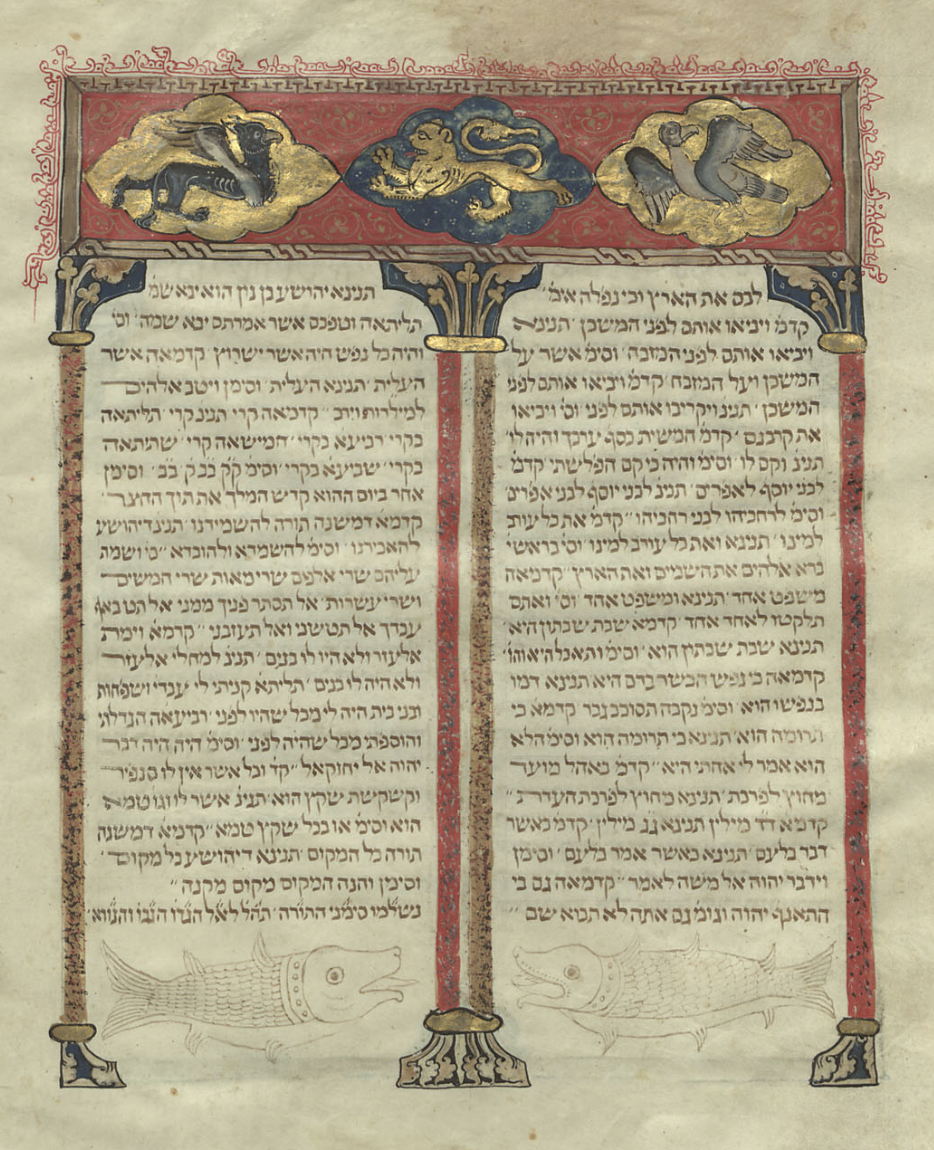 לכם את הארץ וכי נפלה אימ׳
קדמ׳ ויביאו אותם לפני המשכן ׳ תנינא
ויביאו אותם לפני המזבח׳ וסימ׳ אשר על
המשכן ועל המזבח׳ קדמ׳ ויביאו אותם לפני
המשכן׳ תנינ׳ ויקריבו אותם לפני׳ וסי׳ ויביאו
את קרבנם׳ קדמ׳ חמשית כסף ערכך והיה לו
תנינ׳ וקם לו׳ וסימ׳ והיה כי קם הפלשתי׳ קדמ׳
לבני יוסף לאפרים׳ תנינ׳ לבני יוסף לבני אפרים׳
וסימ׳ לרחביהו לבני רחביהו״ קדמ׳ את כל עורב
למינו׳ תנינא ואת כל עורב למינו׳ וסי׳ בראשי׳
ברא אלהים את השמים ואת הארץ״ קדמאה
משפט אחד׳ תנינא ומשפט אחד׳ וסי׳ ואתם
תלקטו לאחד אחד׳ קדמא שבת שבתון היא׳
תנינא שבת שבתון הוא׳ וסימ׳ ותאכל היא והוא׳
קדמאה כי נפש הבשר בדם היא תנינא דמו
בנפשו הוא׳ וסימ׳ נקבה תסובב גבר קדמא כי
תרומה הוא׳ תנינא כי תרומה הוא וסימ׳ הלא
הוא אמר לי אחתי היא״ קדמ׳ באהל מועד
מחוץ לפרכת׳ תנינא מחוץ לפרכת העדת״
קדמא דד מילין תנינא גג מילין״ קדמ׳ כאשר
דבר בלעם׳ תנינא כאשר אמר בלעם׳ וסימן
וידבר יהוה אל משה לאמר״ קדמאה גם בי
התאנף יהוה גם אתה לא תבוא שם ״
תנינא יהושע בן נון הוא יבא שמ׳
תליתאה וטפכם אשר אמרתם יבא שמה׳ וסי׳
והיה כל נפש חיה אשר ישרוץ׳ קדמאה אשר
העלית׳ תנינא העלית׳ וסימן וייטב אלהים
למילדות וירב״ קדמאה קרי תנינ׳ בקרי׳ תליתאה
בקרי׳ רביעא בקרי׳ חמישאה קרי׳ שתיתאה
בקרי״ שביעא בקרי׳ וסימ׳ קק בבק בב׳ וסימן
אחר ביום ההוא קדש המלך את תוך החצר׳
קדמא דמשנה תורה להשמידנו׳ תנינ׳ דיהושע
להאבידנו׳ וסימ׳ להשמדא ולהובדא״ ושמת
עליהם שרי אלפים שרי מאות שרי חמשים
ושרי עשרות׳ אל תסתר פניך ממני אל תט באף
עבדך אל תטשני ואל תעזבני״ קדמא וימת
אלעזר ולא היו לו בנים׳ תנינ׳ למחלי אלעזר
ולא היה לו בנים׳ תליתא קניתי לי עבדי׳ ושפחות
ובני בית היה לי מכל שהיו לפני׳ רביעאה וגדלתי
והוספתי מכל שהיה לפני׳ וסימ׳ היה היה דבר
יהוה אל יחזקאל״ קד׳ וכל אשר אין לו סנפיר
וקשקשת שקץ הוא׳ תנינ׳ אשר לו זוגו טמא
הוא וסימ׳ או בכל שקץ טמא״ קדמא דמשנה
תורה כל המקום׳ תנינא דיהושע כל מקום׳
וסימן והנה המקום מקום מקנה״
נשלמו סימני התורה׳